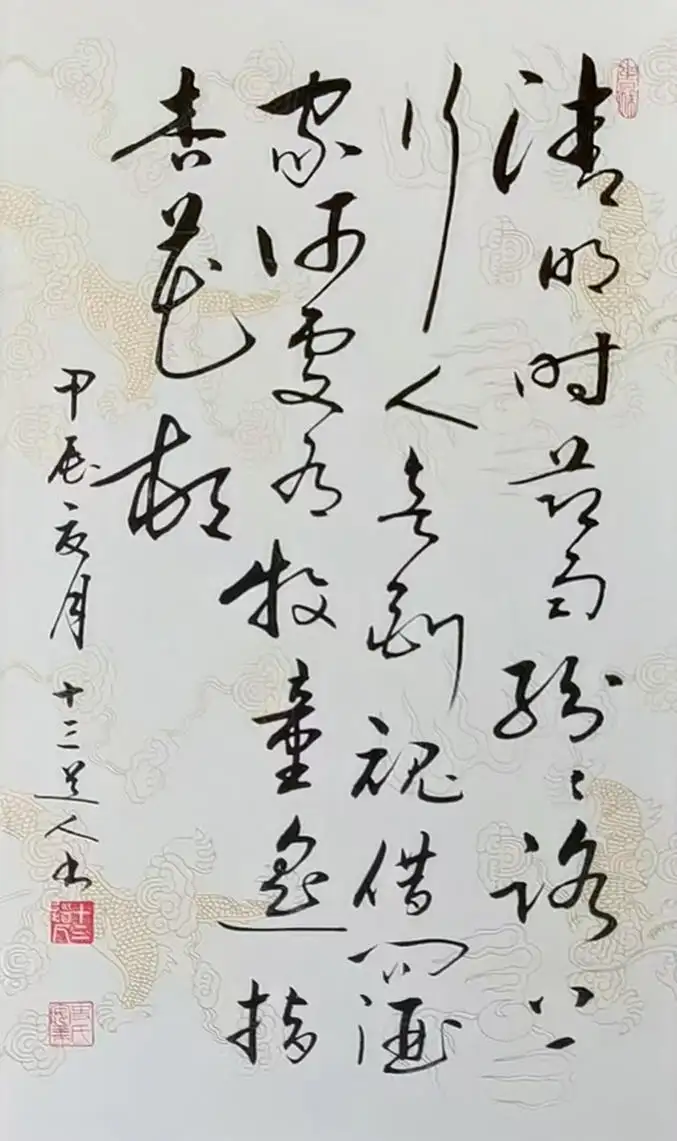 清明时节雨纷々路上
行人欲断魂借问酒
家何处有牧童遥指
杏花村
甲辰 月 十三道人书